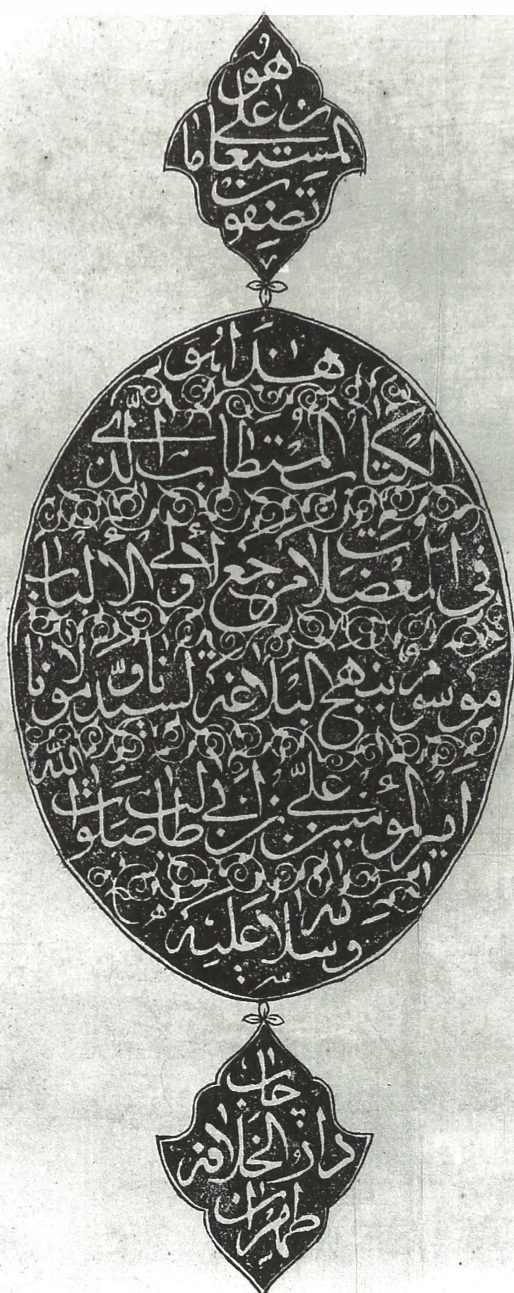 هو
المستعان على ما
تصفون
هذا هو
الكتاب المستطاب الذي
في المعضلات مرجع لأولي الألباب
موسوم بنهج البلاغة لسيدنا ومولانا
امير المؤمنين علي بن أبي طالب صلوات الله
وسلامه عليه
چاپ
دار الخلافة
طهران